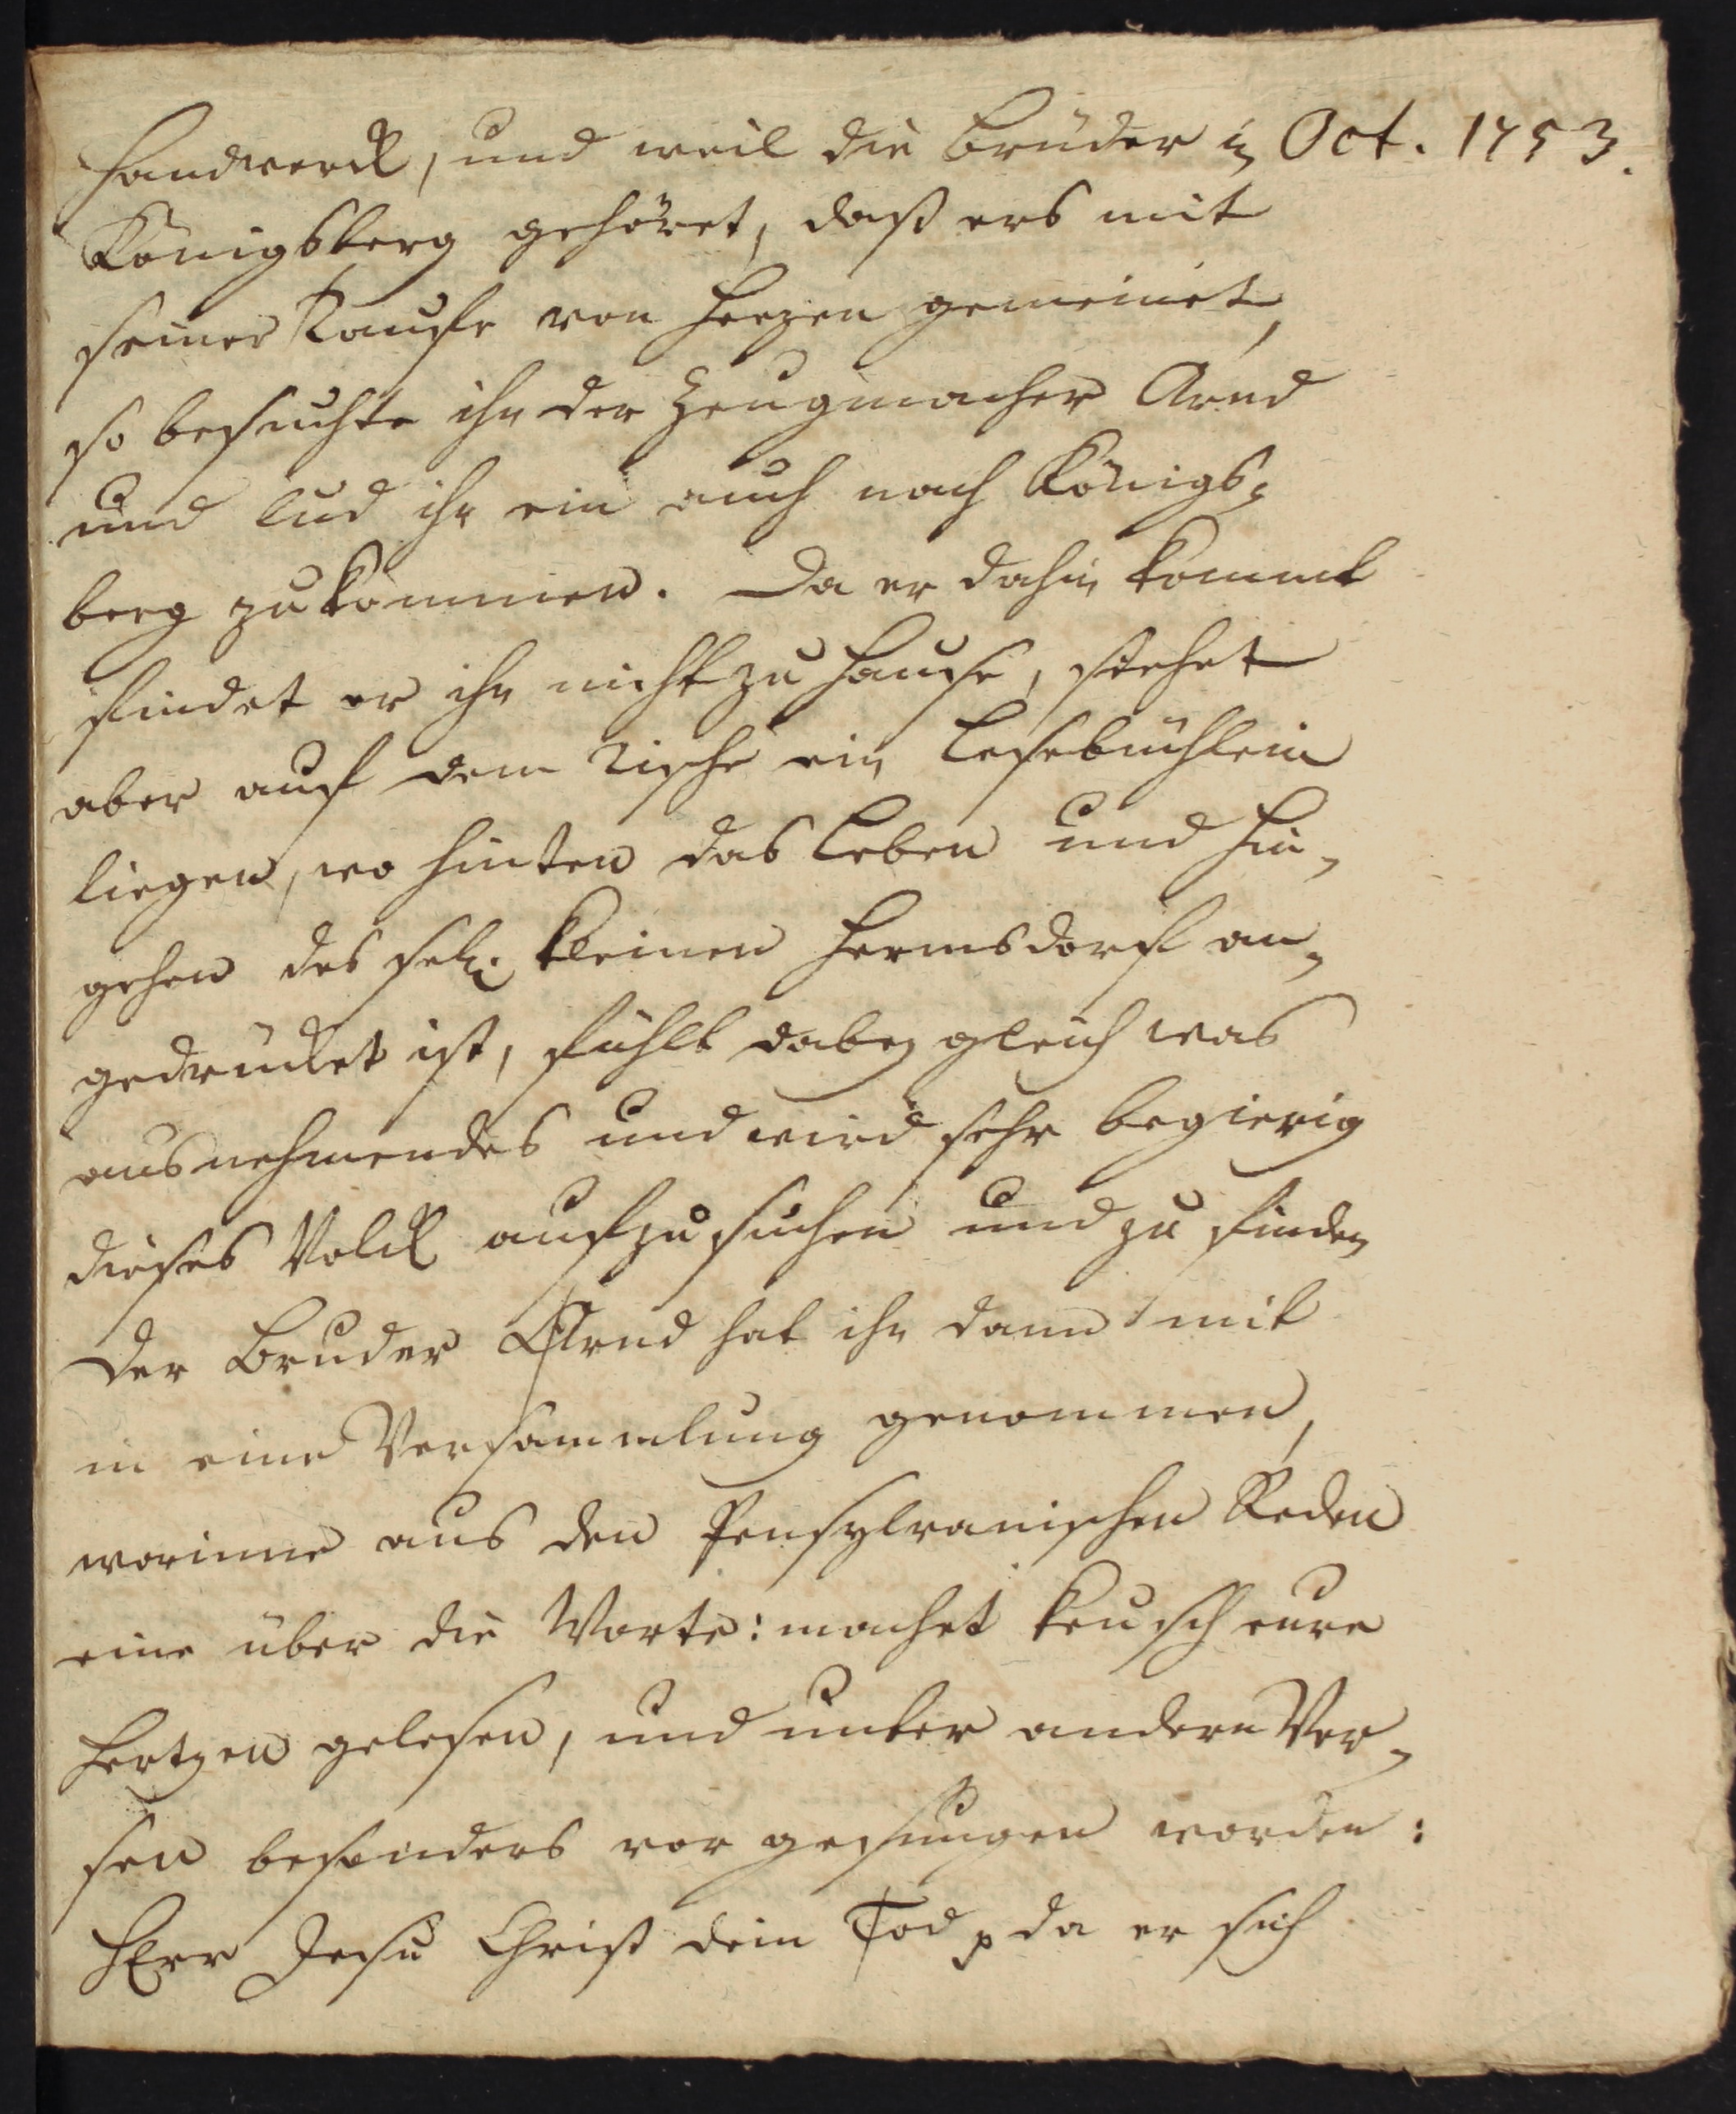 Handwerck, und weil die Brüder in Oct. 1753.
Königsberg gehöret, daß ers mit
seiner Taufe von Herzen gemeinet,
so besuchte ihn der Zeugmacher Arnd
und lud ihn ein auch nach Königs-
berg zu kommen. Da er dahin kommt
findet er ihn nicht zu Hause, siehet
aber auf dem Tische ein Lesebüchlein
liegen, wo hinten das Leben und Hin-
gehen des sel. kleinen Hermsdorf an-
gedrucket ist, fühlt dabey gleich was
ausnehmendes und wird sehr begierig
dieses Volck aufzusuchen und zu finden
Der Bruder Arnd hat ihn dann mit
in eine Versammlung genommen,
worinne aus den Pensylvanischen Reden
eine über die Worte: machet keusch eure
Hertzen gelesen, und unter andern Ver-
sen besonders vor gesungen worden:
HErr Jesu Christ dein Tod p da er sich